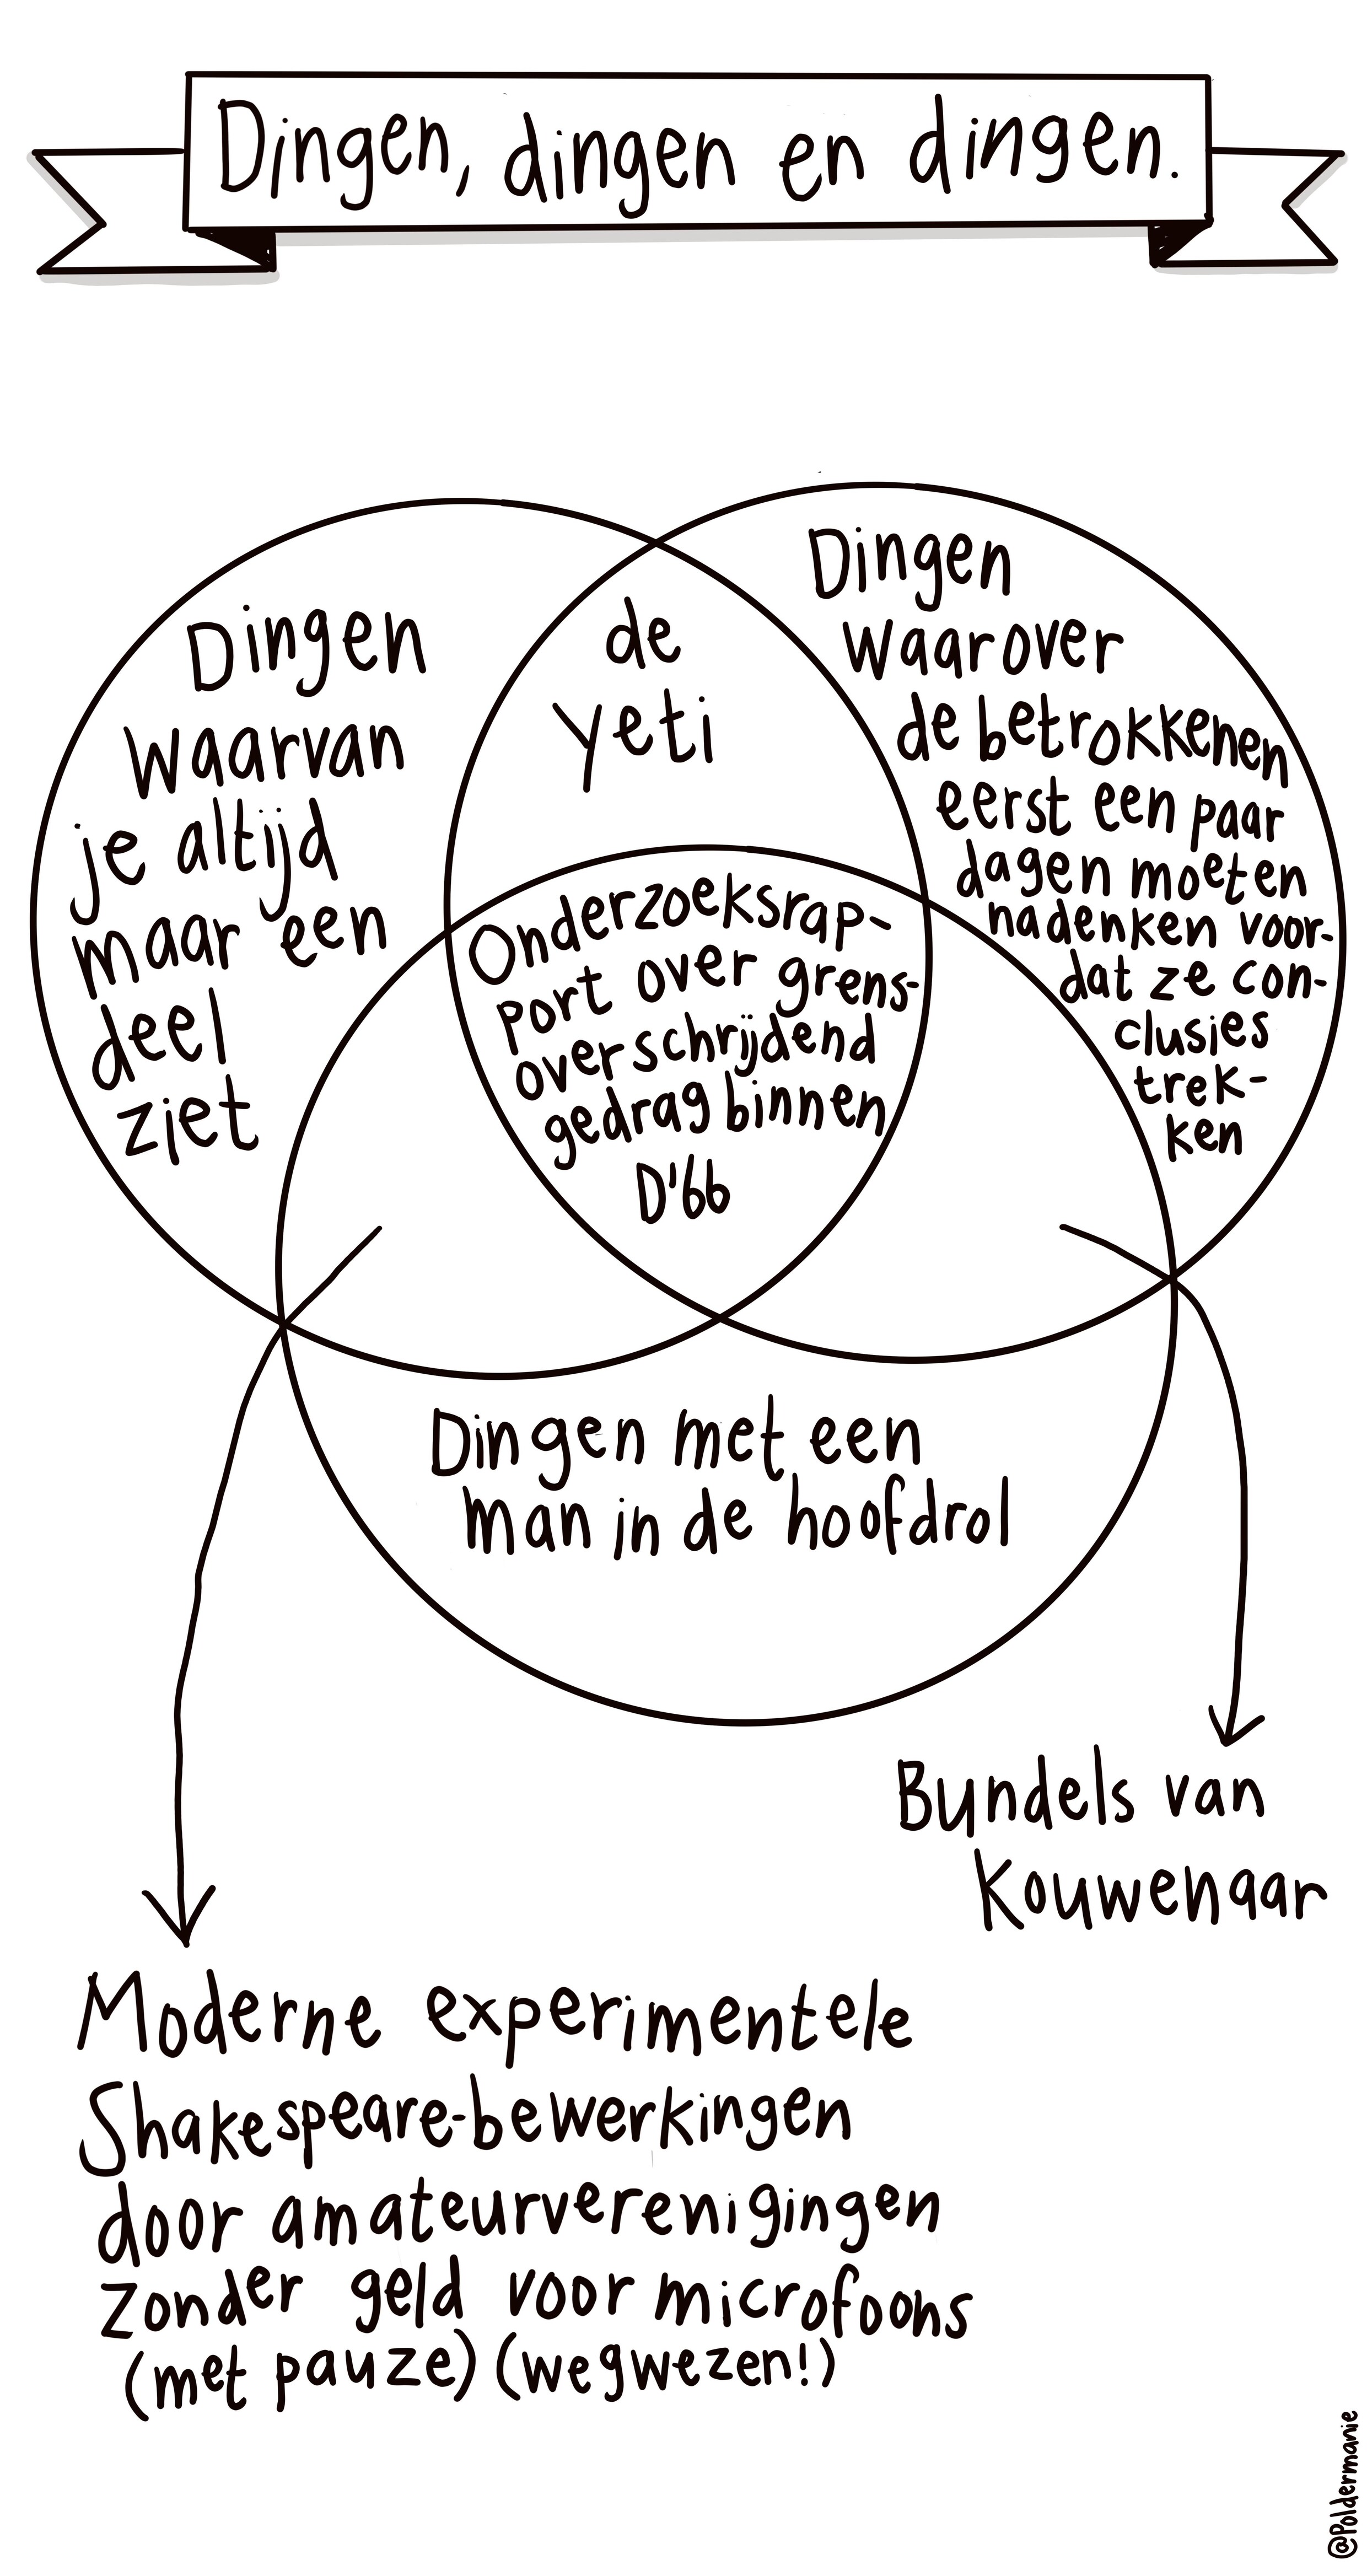 Dingen, dingen en dingen.
Dingen
waarvan
je altijd
maar een
deel
ziet
de
yeti
Dingen
waarover
de betrokkenen
eerst een paar
dagen moeten
nadenken voor-
dat ze con-
clusies
trek-
ken
Onderzoeksrap-
port over grens-
overschrijdend
gedrag binnen
D'66
Dingen met een
man in de hoofdrol
Bundels van
Kouwenaar
Moderne experimentele
Shakespeare-bewerkingen
door amateurverenigingen
zonder geld voor microfoons
(met pauze) (wegwezen!)
@Poldermanie